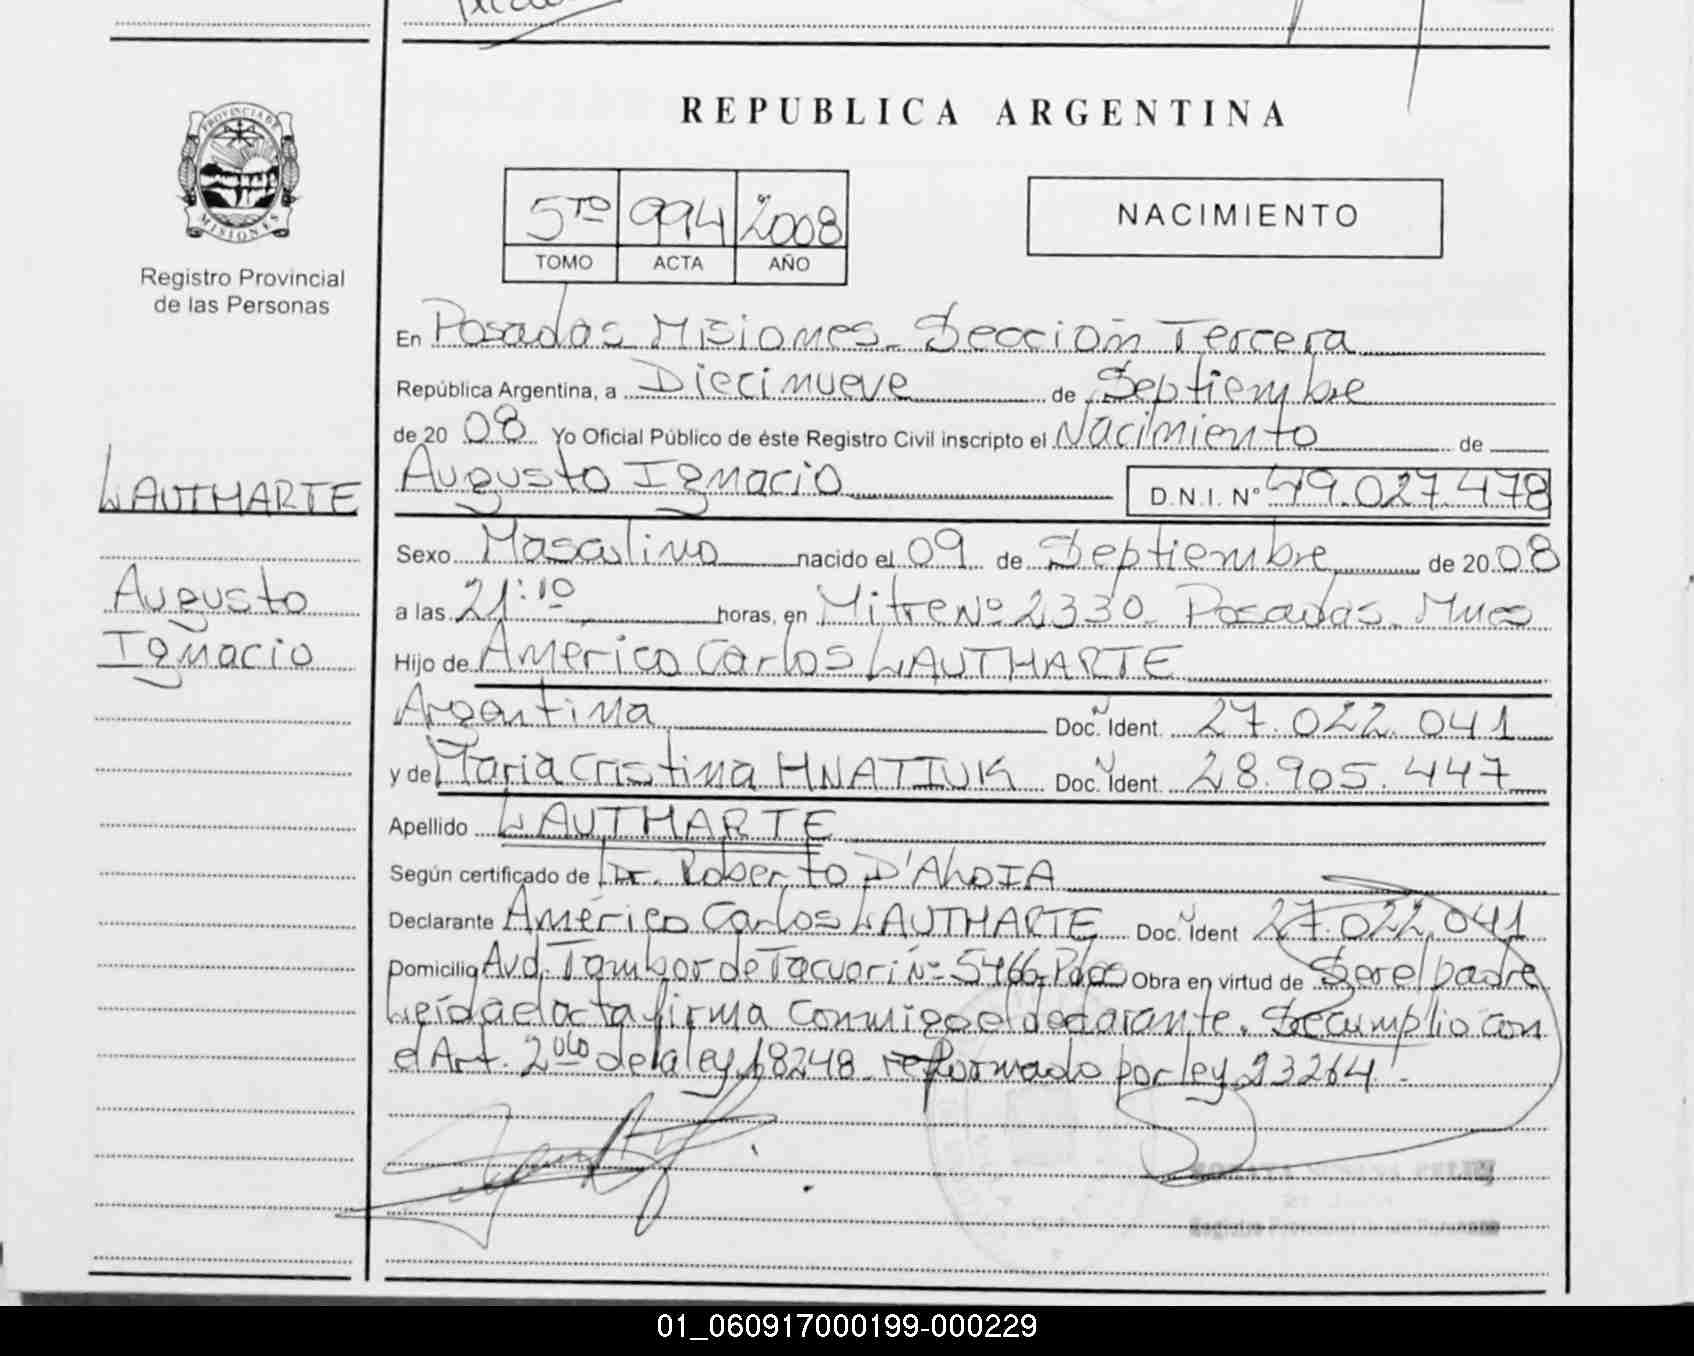 REPUBLICA ARGENTINA
PROVINCIA DE
MISIONES
Registro Provincial
de las Personas
5TO 994 2008
TOMO ACTA AÑO
NACIMIENTO
En Posadas Misiones - Sección Tercera
República Argentina, a Diecinueve de Septiembre
de 20 08 Yo Oficial Público de éste Registro Civil inscripto el Nacimiento de
Augusto Ignacio D.N.I. N° 49.027.478
LAUTHARTE
Sexo Masculino nacido el 09 de Septiembre de 20 08
Augusto
a las 21:10 horas, en Mitre Nº 2330 - Posadas - Mnes
Ignacio
Hijo de Américo Carlos LAUTHARTE
Argentina Doc. Ident. 27.022.041
y de Maria Cristina HNATIUK Doc. Ident. 28.905.447
Apellido LAUTHARTE
Según certificado de Dr. Roberto D'ALOIA
Declarante Américo Carlos LAUTHARTE Doc. Ident 27.022.041
Domicilio Avd. Tambor de Tacuari Nº 5466 - Pdas Obra en virtud de Ser el padre
Leída el acta firma conmigo el declarante. Se cumplio con
el Art. 2do de la ley 18248 reformado por ley 23264.-
01_060917000199-000229